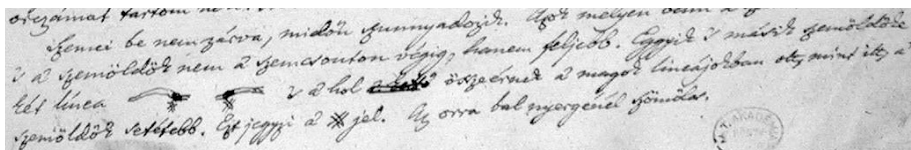 orczámat tartom
Szemei be nem zárva, midőn szunnyadozik. Azok melyen
's a szemöldök nem a szemcsonton végig, hanem feljebb. Eggyik 's másik szemöldöke
két línea 's a hol összeérnek a magok lineájokban ott, mint itt, a
szemöldök setétebb. Ezt jegyzi a # jel. Az orra bal nyergénél szömölcs.
M. T. AKADÉMIA